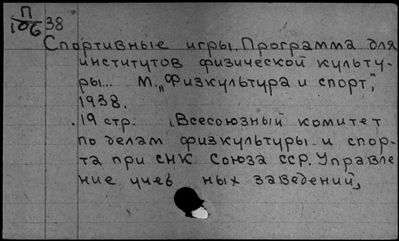 П
106 38
Спортивные игры. Программа для
институтов физической культу-
ры... М. „Физкультура и спорт",
1938.
19 стр. (Всесоюзный комитет
по делам физкультуры и спор-
та при СНК Союза ССР. Управле
ние учеб ных заведений)